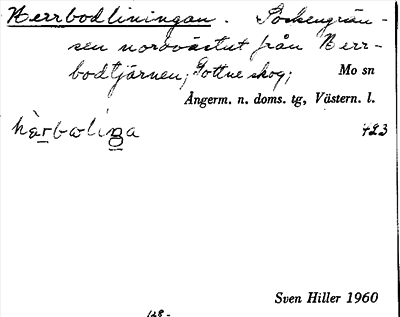 Herrbodliningan. Sockengrän-
sen nordvästut från Herr-
bodtjärnen, Gottne skog; Mo sn
Ångerm. n. doms. tg, Västern. l.
423
Sven Hiller 1960
128-